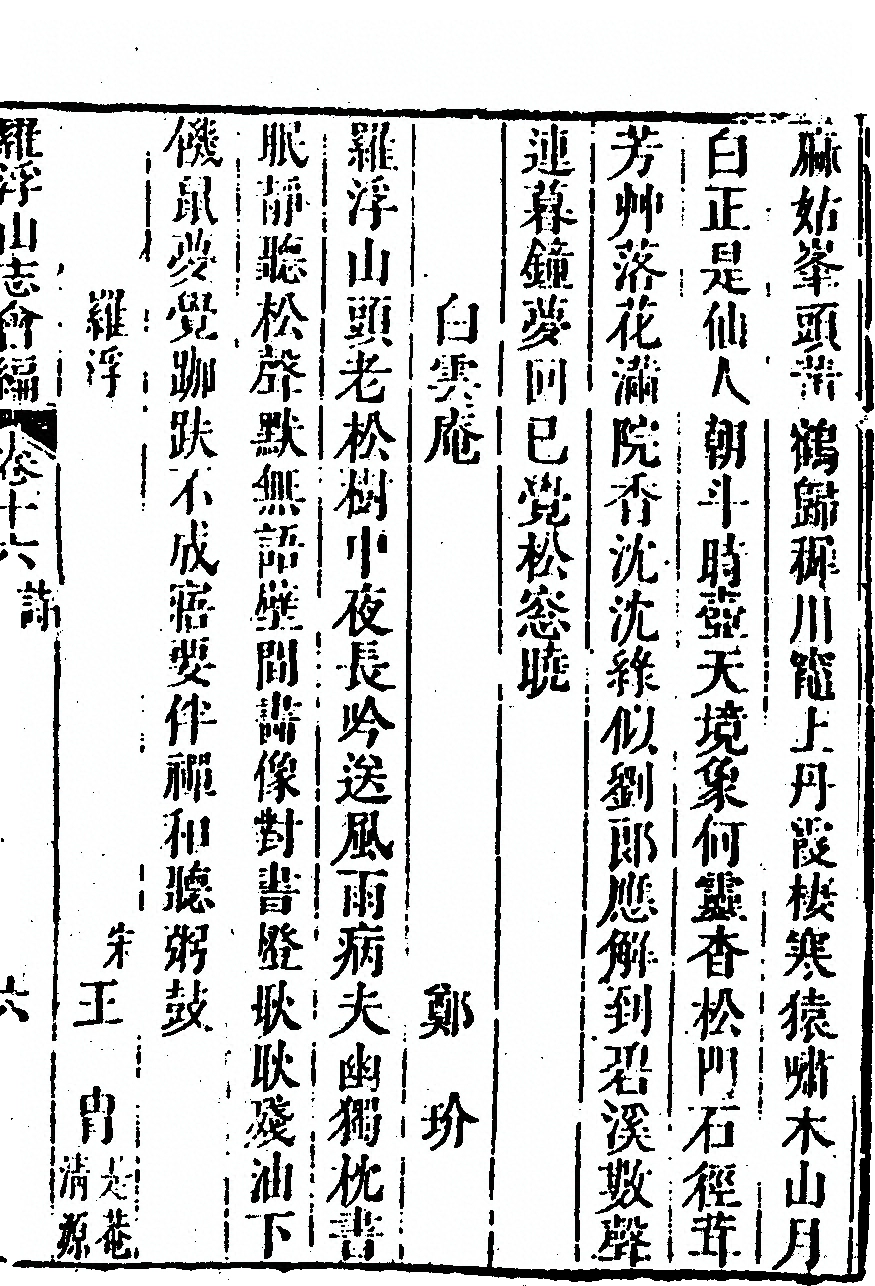 麻姑峯頭黃鶴歸稚川竈上丹霞棲寒猿嘯木山月
白正是仙人朝斗時壺天境象何靈杳松門石徑茸
芳艸落花滿院香沈沈綠似劉郎應解到碧溪數聲
連暮鐘夢回已覺松窓曉
白雲庵 鄭玠
羅浮山頭老松樹中夜長吟送風雨病夫幽獨枕書
眠靜聽松聲默無語壁間畵像對書燈耿耿殘油下
饑鼠夢覺跏趺不成寤要伴禪和聽粥鼓
羅浮 宋 王胄 是菴 清源
羅浮山志會編 卷十六 詩 六